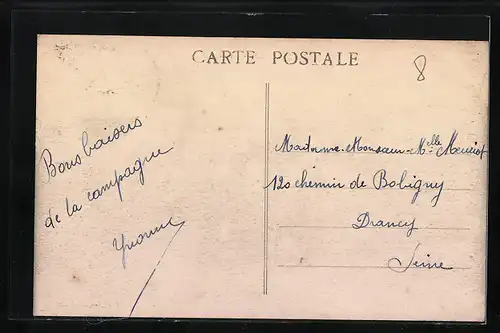 CARTE POSTALE
8
Bons baisers
de la campagne
Yvonne
Madame. Monsieur. Melle
120 chemin de Bobigny
Drancy
Seine